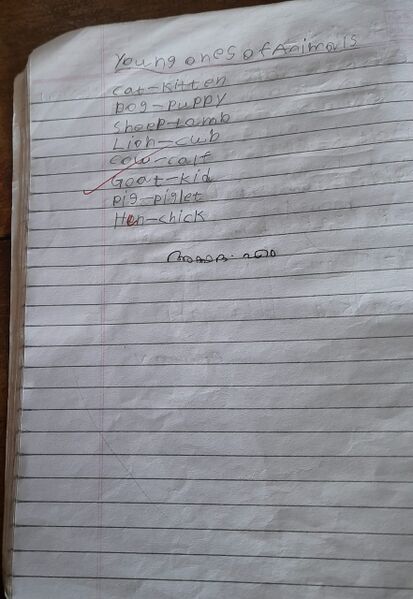 Young ones of Animals
cat-kitten
Dog-puppy
sheep-Lamb
Lion-cub
cow-calf
Goat-kid
pig-piglet
Hen-chick